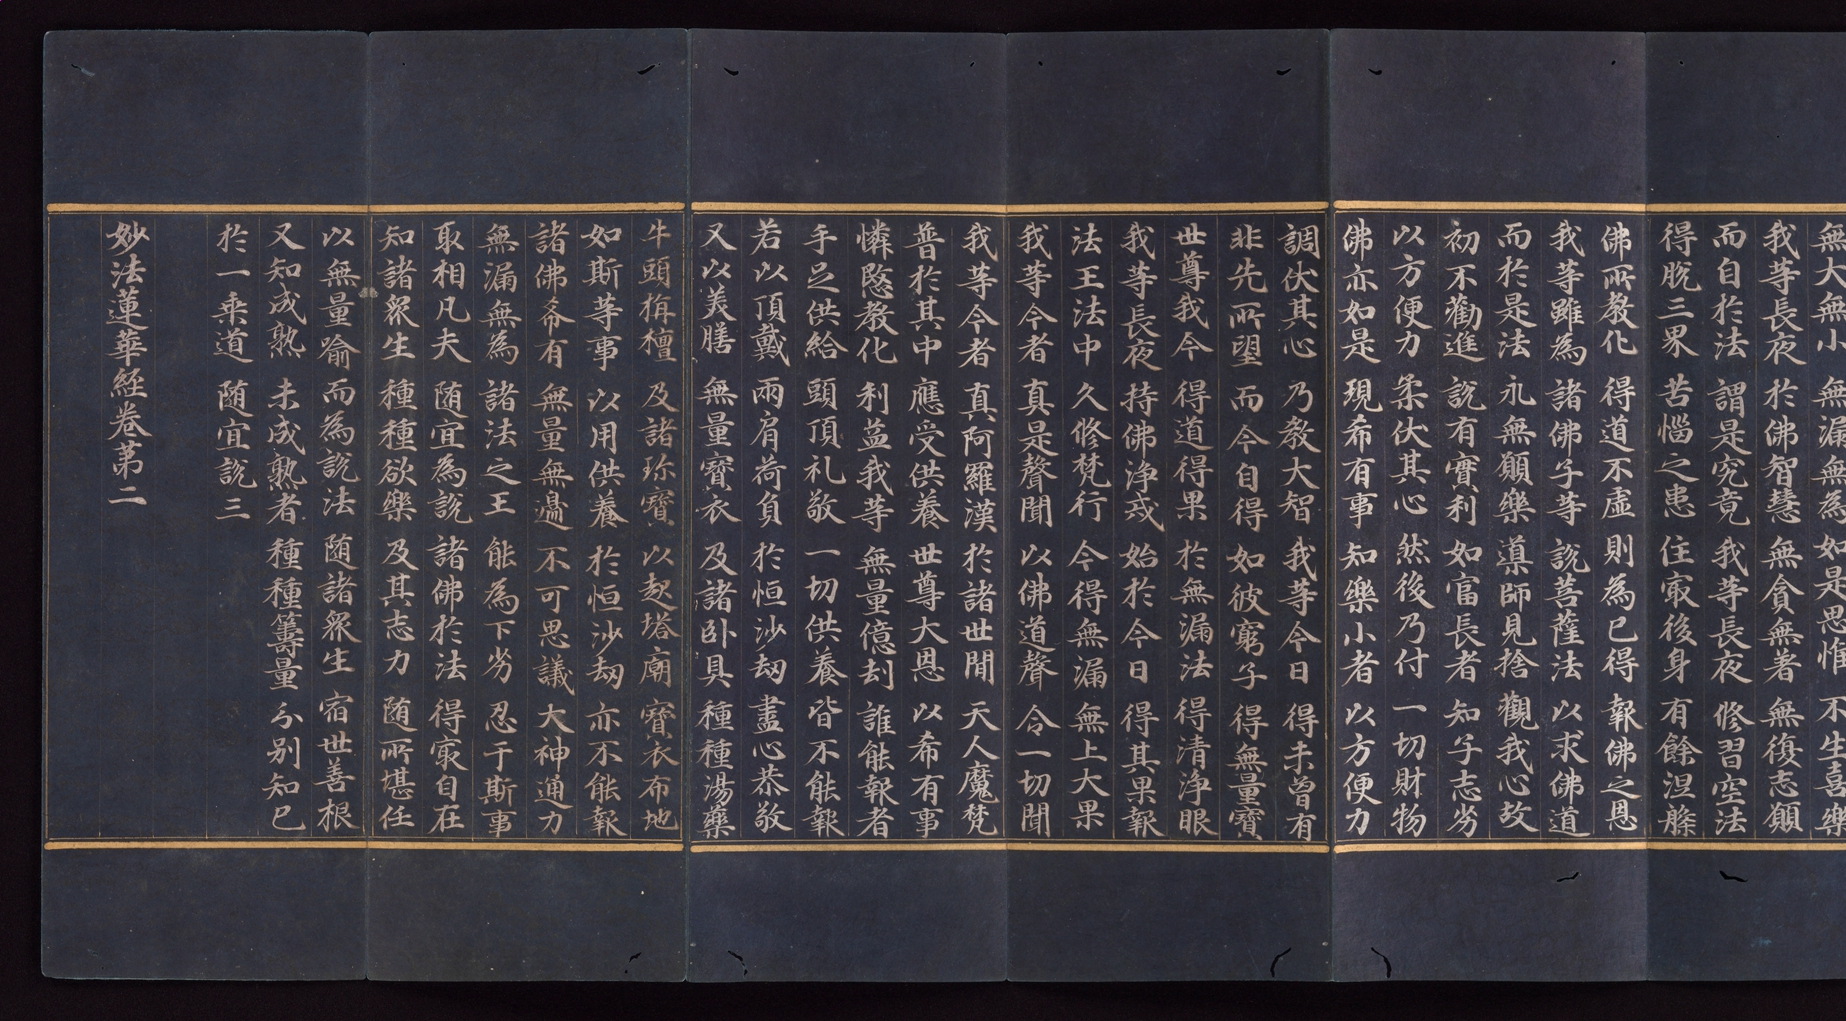 無大無小　無漏無為　如是思惟　不生喜樂
我等長夜　於佛智慧　無貪無著　無復志願
而自於法　謂是究竟　我等長夜　修習空法
得脫三界　苦惱之患　住冣後身　有餘涅槃
佛所教化　得道不虛　則為已得　報佛之恩
我等雖為　諸佛子等　說菩薩法　以求佛道
而於是法　永無願樂　導師見捨　觀我心故
初不勸進　說有實利　如富長者　知子志劣
以方便力　柔伏其心　然後乃付　一切財物
佛亦如是　現希有事　知樂小者　以方便力
調伏其心　乃教大智　我等今日　得未曾有
非先所望　而今自得　如彼窮子　得無量寶
世尊我今　得道得果　於無漏法　得清淨眼
我等長夜　持佛淨戒　始於今日　得其果報
法王法中　久修梵行　今得無漏　無上大果
我等今者　真是聲聞　以佛道聲　令一切聞
我等今者　真阿羅漢　於諸世間　天人魔梵
普於其中　應受供養　世尊大恩　以希有事
憐愍教化　利益我等　無量億刦　誰能報者
手足供給　頭頂礼敬　一切供養　皆不能報
若以頂戴　兩肩荷負　於恒沙刼　盡心恭敬
又以美膳　無量寶衣　及諸卧具　種種湯藥
牛頭栴檀　及諸珎寶　以起塔廟　寶衣布地
如斯等事　以用供養　於恒沙刼　亦不能報
諸佛希有　無量無邊　不可思議　大神通力
無漏無為　諸法之王　能為下劣　忍于斯事
取相凡夫　随宜為說　諸佛於法　得冣自在
知諸眾生　種種欲樂　及其志力　随所堪任
以無量喻　而為說法　随諸眾生　宿世善根
又知成熟　未成熟者　種種籌量　分別知已
於一乘道　随宜說三
妙法蓮華經卷第二